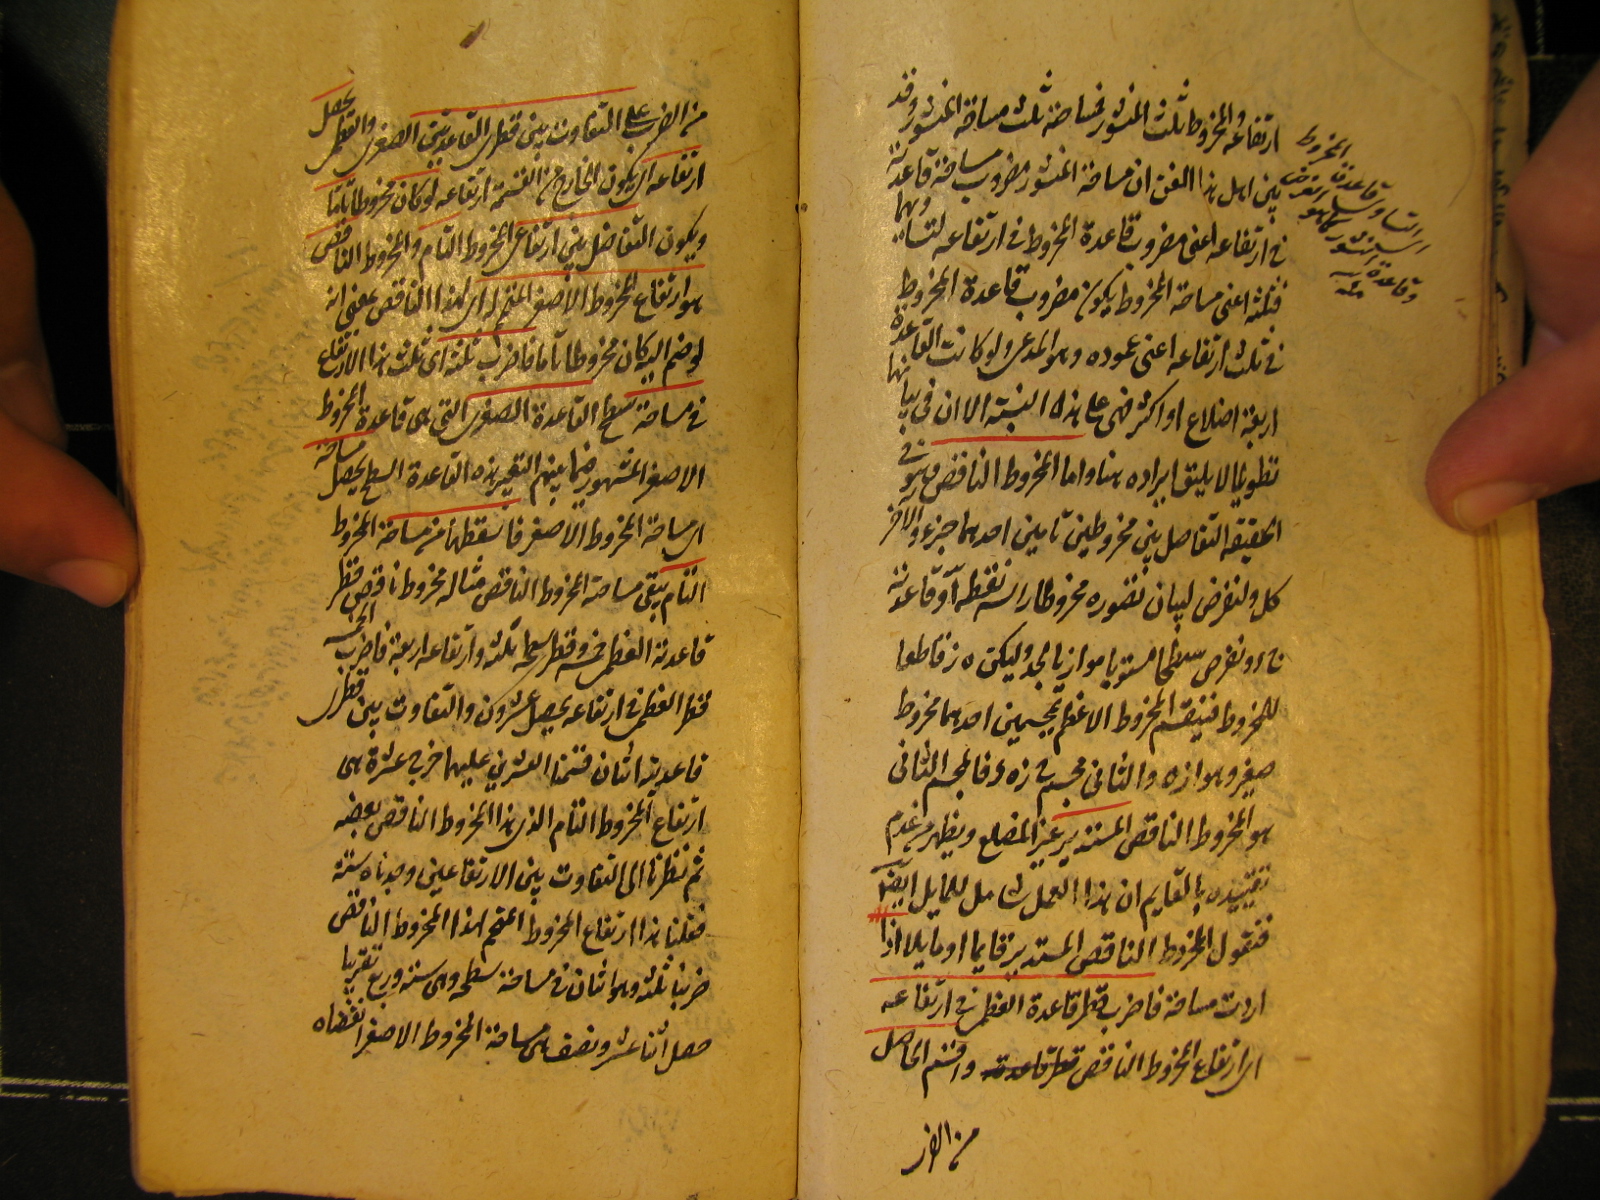 ارتفاعه والمخروط ثلث المنشور فمساحته ثلث مساحة المنشور وقد
بين اهل هذا الفن ان مساحة المنشور مضروب مساحة قاعدته
في ارتفاعه اعنى مضروب قاعدة المخروط في ارتفاعه لتساويهما
فثلثه اعنى مساحة المخروط يكون مضروب قاعدة المخروط
في ثلث ارتفاعه اعنى عموده وهو المدعى ولو كانت القاعدة
اربعة اضلاع او اكثر فهى على هذه النسبة الا ان في بيانها
تطويلا لا يليق ايراده هنا واما المخروط الناقص فهو في
الحقيقة التفاضل بين مخروطين تامين احدهما جزء والآخر
كل ولنفرض لبيان تصوره مخروطا راسه نقطة آ وقاعدته
ونفرض سطحا مستويا موازيا وليكن ه ز قاطعا
للمخروط فينقسم المخروط الاعظم بمجسمين احدهما مخروط
صغير وهو ا ز ه والثانى مجسم فالمجسم الثانى
هو المخروط الناقص المستدير غير المضلع ويظهر من عدم
تقييده بالقايم ان هذا العمل شامل للمايل ايضا
فنقول المخروط الناقص المستدير قايما او مايلا اذا
اردت مساحة فاضرب قطر قاعدة العظمى في ارتفاعه
اى ارتفاع المخروط الناقص قطر قاعدته واقسم الحاصل
من الضرب
المخروط
وقاعدة
منه
من الضرب على التفاوت بين قطرى القاعدتين الصغرى والعظمى يحصل
ارتفاعه اى يكون الخارج من القسمة ارتفاعه لو كان مخروطا تاما
ويكون التفاضل بين ارتفاعى المخروط التام والمخروط الناقص
هو ارتفاع المخروط الاصغر المتمم له اى لهذا الناقص بمعنى انه
لو ضم اليه كان مخروطا تاما فاضرب ثلثه اى ثلث هذا الارتفاع
في مساحة سطح القاعدة الصغرى التى هى قاعدة المخروط
الاصغر المشهور فيما بينهم التعبير بهذه القاعدة السطح يحصل مساحة
اى مساحة المخروط الاصغر فاسقطها من مساحة المخروط
التام يبقى مساحة المخروط الناقص مثاله مخروط ناقص قطر
قاعدته العظمى خمسة وقطر سطحه ثلثة وارتفاعه اربعة فاضرب الخمسة
قطر العظمى في ارتفاعه يحصل عشرون والتفاوت بين قطرى
قاعدتيه اثنان قسمنا العشرين عليهما خرج عشرة هى
ارتفاع المخروط التام الذى هذا المخروط الناقص بعضه
ثم نظرنا الى التفاوت بين الارتفاعين وجدناه ستة
فعلمنا هذا ارتفاع المخروط المتمم لهذا المخروط الناقص
ضربنا ثلثه وهو اثنان في مساحة سطحه وهى ستة وربع تقريبا
حصل اثنا عشر ونصف هى مساحة المخروط الاصغر نقصناه